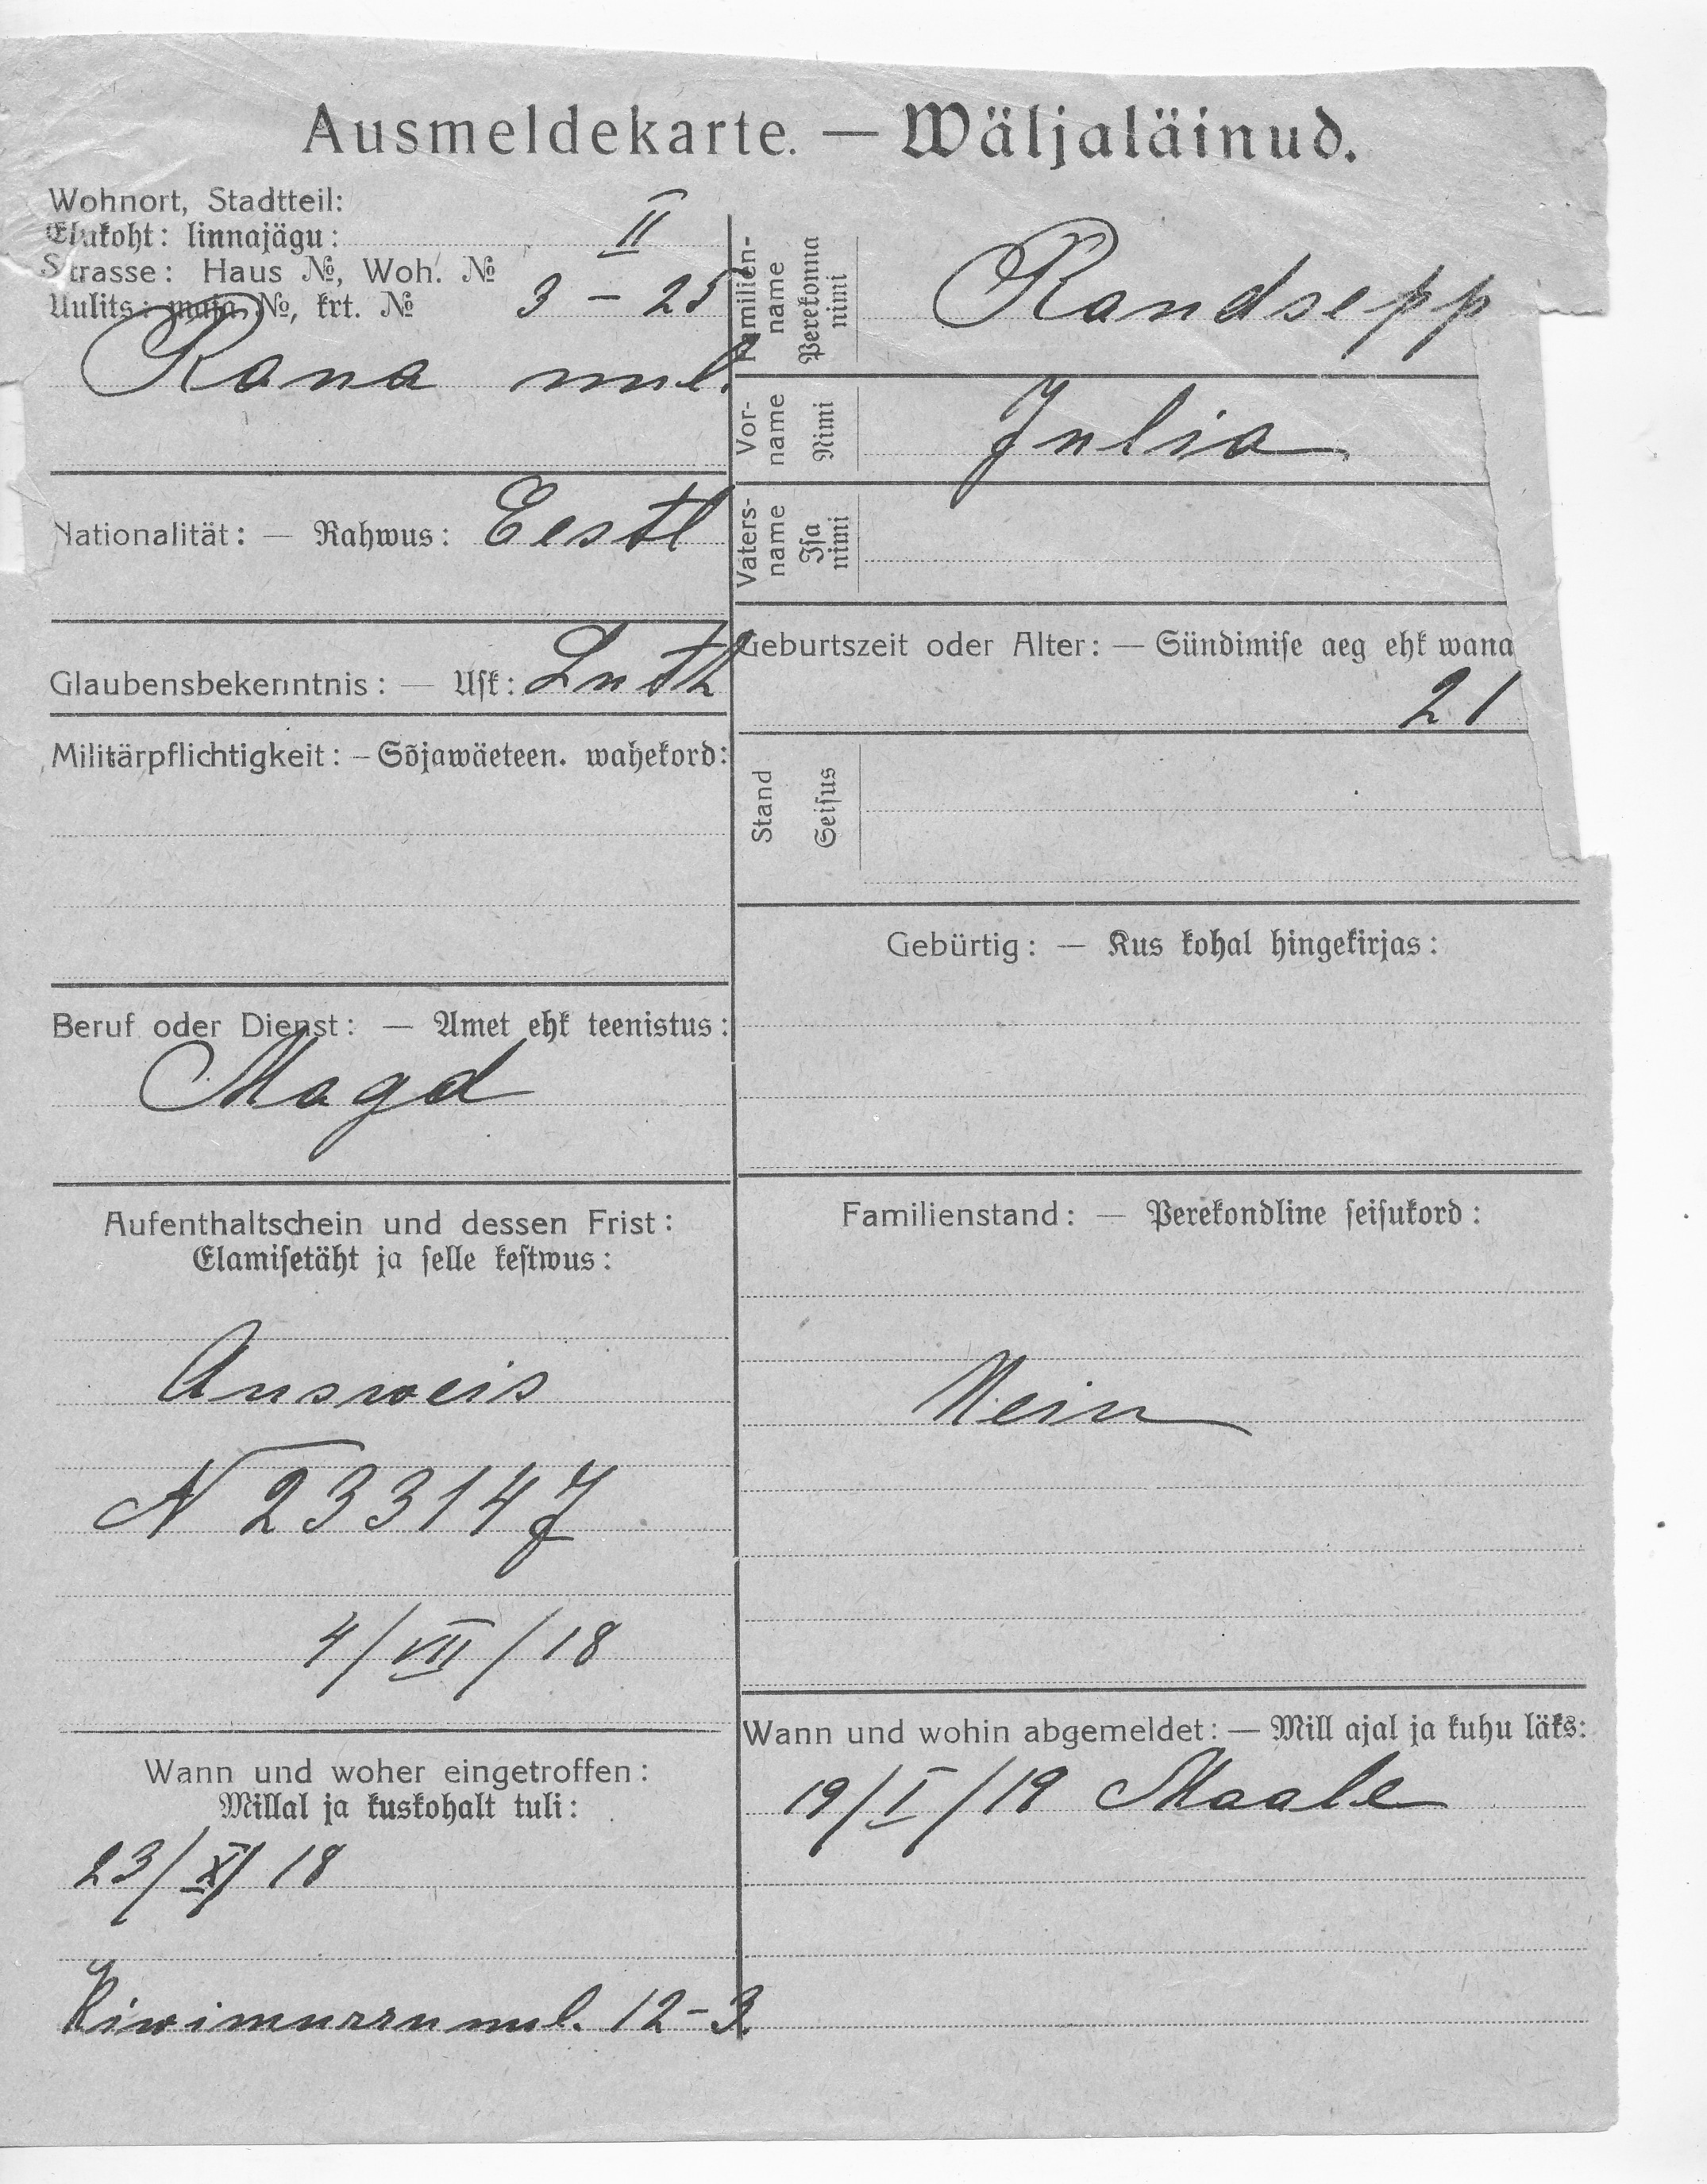 Ausmeldekarte. — Wäljaläinud.
Wohnort, Stadtteil:
Elukoht: linnajägu: II
Strasse: Haus №, Woh. №
Uulits: maja №, krt. № 3 – 25
Rana uul.
Nationalität: — Rahwus: Eestl
Glaubensbekenntnis: — Usk: Luth
Militärpflichtigkeit: – Sõjawäeteen. wahekord:
Beruf oder Dienst: — Amet ehk teenistus:
Magd
Aufenthaltschein und dessen Frist:
Elamisetäht ja selle kestwus:
Ausweis
N 233147
4/VII/18
Wann und woher eingetroffen:
Millal ja kuskohalt tuli:
23/XI/18
Kiwimurru uul. 12–3.
Familien-
name
Perekonna
nimi
Randsepp
Vor-
name
Nimi
Julia
Vaters-
name
Isa
nimi
Geburtszeit oder Alter: — Sündimise aeg ehk wana
21
Stand
Seisus
Gebürtig: — Kus kohal hingekirjas:
Familienstand: — Perekondline seisukord:
Nein
Wann und wohin abgemeldet: — Mill ajal ja kuhu läks:
19/I/19 Maale